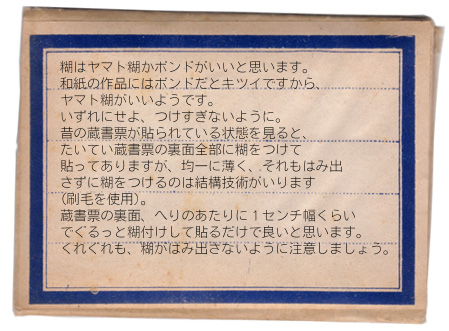 糊はヤマト糊かボンドがいいと思います。
和紙の作品にはボンドだとキツイですから、
ヤマト糊がいいようです。
いずれにせよ、つけすぎないように。
昔の蔵書票が貼られている状態を見ると、
たいてい蔵書票の裏面全部に糊をつけて
貼ってありますが、均一に薄く、それもはみ出
さずに糊をつけるのは結構技術がいります
(刷毛を使用)。
蔵書票の裏面、へりのあたりに１センチ幅くらい
でぐるっと糊付けして貼るだけで良いと思います。
くれぐれも、糊がはみ出さないように注意しましょう。